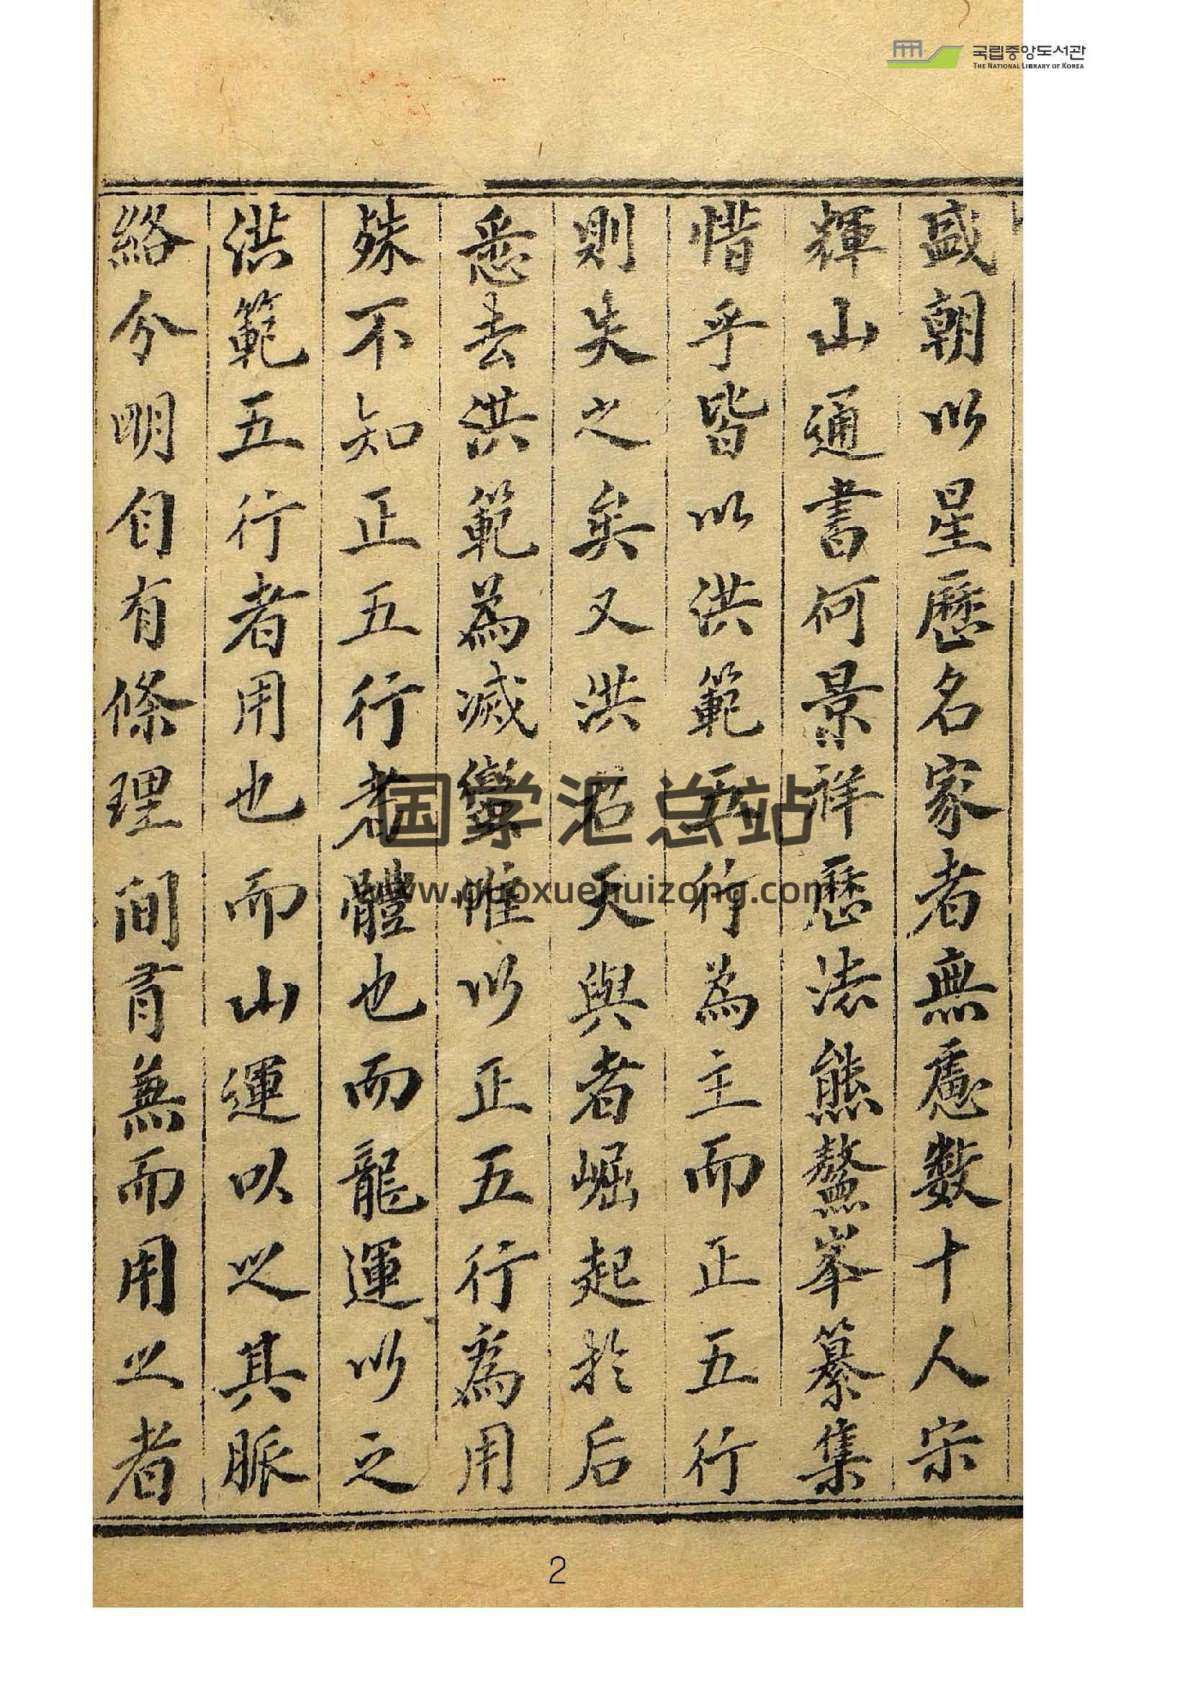 국립중앙도서관
THE NATIONAL LIBRARY OF KOREA
盛朝以星歷名家者無慮數十人宋
輝山通書何景祥歷法熊鰲峯纂集
惜乎皆以洪範五行為主而正五行
則失之矣又洪名天與者崛起於后
悉去洪範為滅蠻惟以正五行為用
殊不知正五行者體也而龍運以之
洪範五行者用也而山運以之其脈
絡分明自有條理間有兼而用之者
国学汇总站
www.guoxuehuizong.com
2